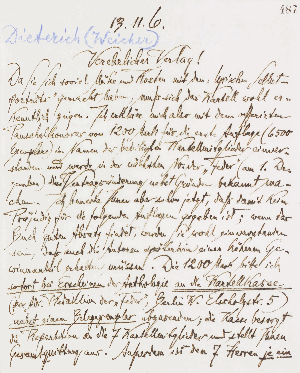 487
13. 11. 6.
Dieterich (Weicher)
Verehrlicher Verlag!
Da Sie sich soviel Mühe und Kosten mit dem "lyrischen
gemacht haben, muss sich das Kartell wohl er-
kenntlich zeigen. Ich erkläre mich also mit dem offerierten
Pauschalhonorar von 1200 Mark für die erste Auflage (6500
Exemplare) im Namen der beteiligten Kartellmitglieder einver-
standen und werde in der nächsten Nr. der "Feder" (am 1. De-
zember) die Vertragsänderung nebst Gründen bekannt ma-
chen. Ich bemerke Ihnen aber schon jetzt, dass damit kein
Präjudiz für die folgenden Auflagen gegeben ist; wenn das
Buch guten Absatz findet, werden Sie wohl einverstanden
sein, dass auch die Autoren späterhin einen höheren Ge-
winnanteil erhalten müssen. Die 1200 Mark bitte ich
sofort bei Erscheinen der Anthologie an die Kartellkasse
(per Adr. Redaktion der "Feder", Berlin W. Elssholzstr. 5)
nebst einem Belegexemplar abzusenden; die Kasse besorgt
die Repartition an die Kartellmitglieder und stellt Ihnen
Gesamtquittung aus. Ausserdem ist den 7 Herren je ein